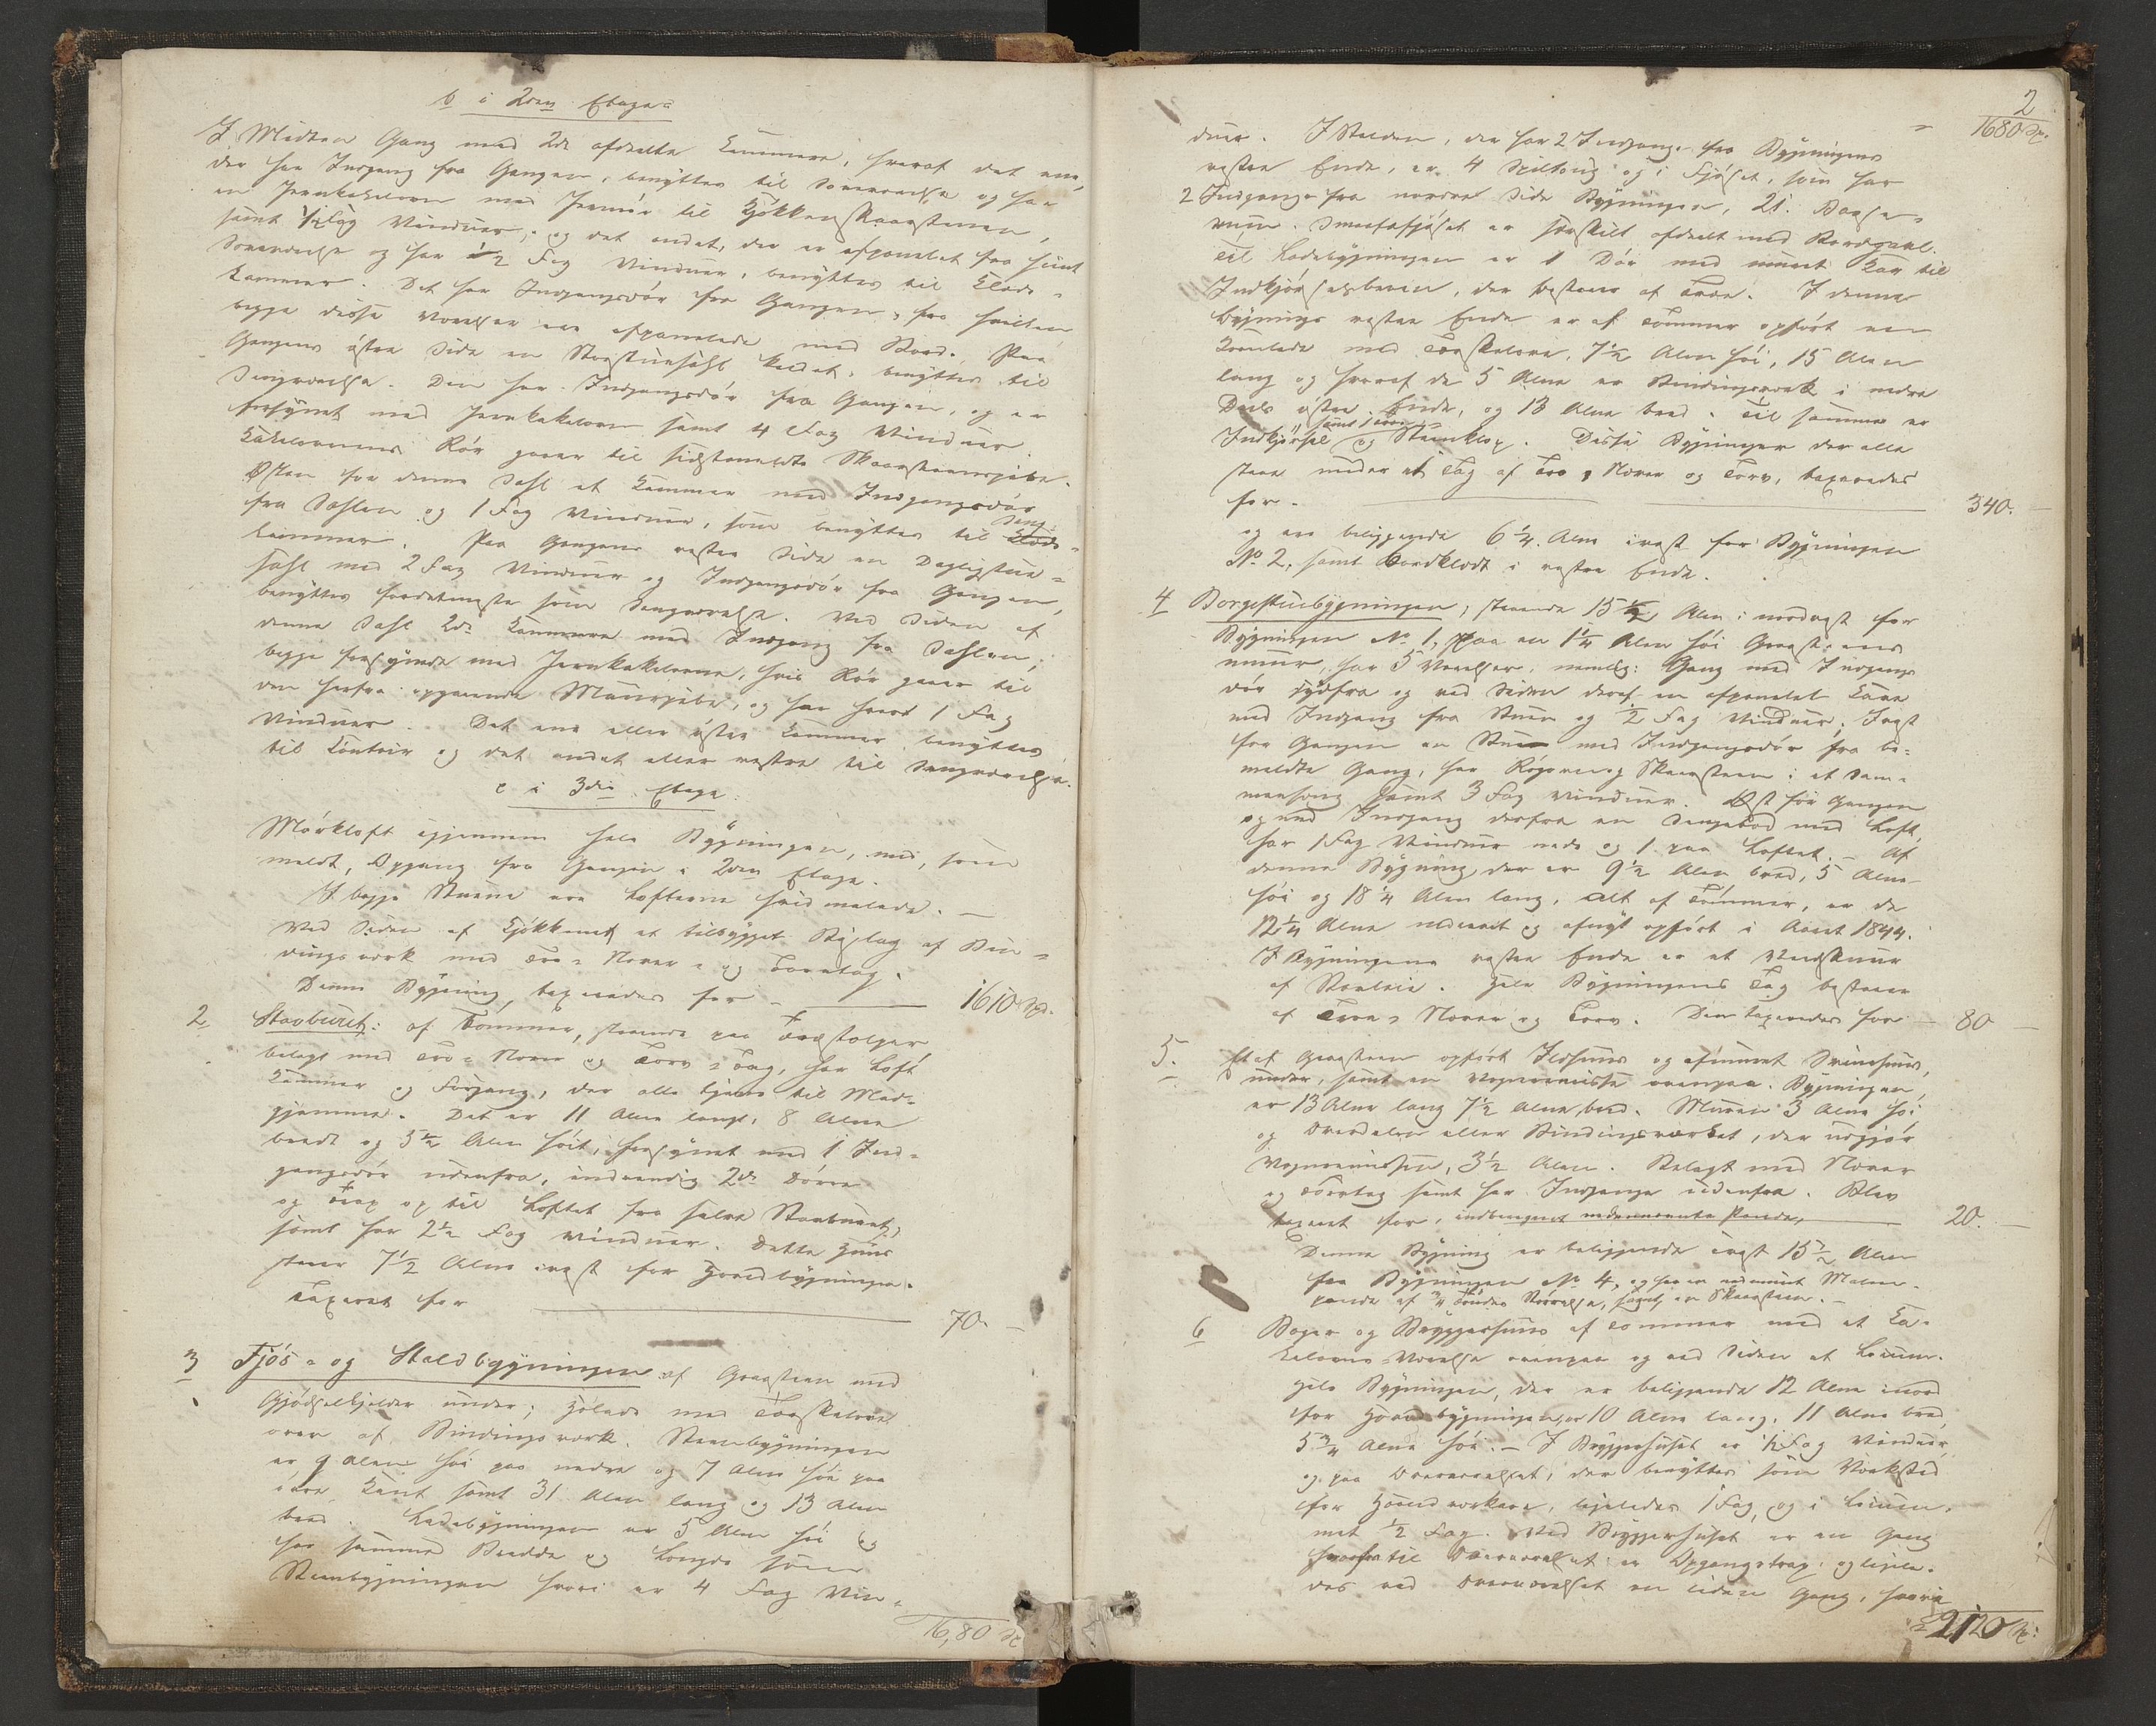 b i 2den Etage:
I Midten Gang med 2de afdeelte Kammere, hvoraf det ene,
der har Indgang fra Gangen, benyttes til Soveværelse og har
en Jernkakelovn med Jernrör til Kjökkenskorstenen,
samt 1/2 Fag Vinduer; og det andet, der er afpanelet fra samt
Soveværelse og har 1/2 Fag Vinduer, benyttes til Klæde-
kammer. Det har Indgangsdör fra Gangen, fra hvilken
begge disse Værelser ere afpanelede med Bord. Paa
Gangens östre Side en Storstuesahl kaldet, benyttes til
Sengeværelse. Den har Indgangsdör fra Gangen, og er
forsynet med Jernkakelovn samt 4 Fag Vinduer.
Kakelovnens Rör gaaer til sidstomeldte Skorsteenspibe.
Østen for denne Sahl et Kammer med Indgangsdör
fra Sahlen og 1 Fag Vinduer, som benyttes til Klæde-
Senge-
kammer. Paa Gangens vestre Side en Dagligstue-
sahl med 2 Fag Vinduer og Indgangsdör fra Gangen,
benyttes fordetmeste som Sengeværelse. Ved Siden af
denne Sahl 2de Kammere med Indgang fra Sahlen;
begge forsynede med Jernkakelovne, hvis Rör gaaer til
den herfra opgaaende Muurpibe, og har hvert 1 Fag
Vinduer. Det ene eller östre Kammer benyttes
til Contoir og det andet eller vestre til Sengeværelse.
c i 3die Etage:
Mörkloft igjennem hele Bygningen, med, som
meldt, Opgang fra Gangen i 2den Etage.
I begge Stuerne ere Lofterne hvidmalede. —
Ved Siden af Kjökkenet et tilbygget Bislag af Bin-
dingsværk med Træ- Næver- og Torvtag.
Denne Bygning taxeredes for — 1610 Spd.
2 Stavburet: af Tömmer, staaende paa Træstolper
belagt med Træ- Næver og Torv-Tag, har Loft
Kammer og Forgang, der alle tjene til Mad-
gjemme. Det er 11 Alen langt, 8 Alen
bredt og 5 1/2 Alen höit, forsynet med 1 Ind-
gangsdör udenfra, indvendig 2de Dörre
og Trap op til Loftet fra selve Stavburet,
samt har 2 1/2 Fag Vinduer. Dette Huus
staaer 7 1/2 Alen i vest for Hovedbygningen.
Taxeret for — 70. —
3 Fjös- og Staldbygningen af Graasteen med
Gjödselkjelder under; Hölade med Træskelove
over af Bindingsværk. Steenbygningen
er 9 Alen höi paa nedre og 7 Alen höi paa
övre Kant samt 31 Alen lang og 13 Alen
bred. Ladebygningen er 5 Alen höi og
har samme Bredde og Længde som
Steenbygningen hvori er 4 Fag Vin-
1680 Sp
2
1680 Sp.
duer. I Stalden, der har 2 Indgange fra Bygningens
vestre Ende, er 4 Spiltoug og i Fjöset, som har
2 Indgange fra nordre Side Bygningen, 21 Baase-
rum. Smaafæfjöset er særskilt afdeelt med Bordpanel.
Til Ladebygningen er 1 Dör med muret Kar til
Indkjörselsbroen, der bestaaer af Træe. I denne
Bygnings vestre Ende er af Tömmer opfört en
Kornlade med Træskelove, 7 1/2 Alen höi, 15 Alen
lang og hvoraf de 5 Alen er Bindingsværk i nedre
Deels östre Ende, og 13 Alen bred. Til samme er
samt 1 Broe
Indkjörsel og Steenklop. Disse Bygninger der alle
staae under et Tag af Træ, Næver og Torv, taxeredes
for — 340. —
og ere beliggende 6 1/4 Alen i vest for Bygningen
No 2, samt Bordklædt i vestre Ende.
4 Borgestuebygningen, staaende 15 1/2 Alen i nordvest for
Bygningen No 1, paa en 1 1/4 Alen höi Graasteens
muur, har 5 Værelser, nemlig: Gang med Indgangs
dör sydfra og ved Siden deraf en afpanelet Kove
med Indgang fra Stuen og 1/2 Fag Vinduer; I vest
for Gangen en Stue med Indgangsdör fra be-
meldte Gang, har Rögovn og Skorsteen i et Sam-
menhæng samt 3 Fag Vinduer. Øst for Gangen
og med Indgang derfra en Sengebod med Loft,
har 1 Fag Vinduer nede og 1 paa Loftet. — Af
denne Bygning, der er 9 1/2 Alen bred, 5 Alen
höi og 18 1/4 Alen lang, alt af Tömmer, er de
12 1/4 Alen nedrevet og afnyt opfört i Aaret 1844.
I Bygningens vestre Ende er et Vedskuur
af Reisverk. Hele Bygningens Tag bestaaer
af Træe, Næver og Torv. Den taxeredes for — 80 —
5. Et af Graasteen opfört Ildhuus og afmuret Sviinehuus,
under, samt en Vognremisse ovenpaa. Bygningen
er 13 Alen lang 7 1/2 Alen bred. Muren 3 Alen höi
og Overdelen eller Bindingsværket, der udgjör
Vognremissen, 3 1/2 Alen. Belagt med Næver
og Torvtag samt har Indgange udenfra. Blev
taxeret for, indberegnet nedennævnte Pande, — 20. —
Denne Bygning er beliggende i vest 15 1/2 Alen
fra Bygningen No 4, og har en nedmuret Malm-
pande af 3/4 Tönders Störrelse, samt en Skorsteen. —
6 Bager og Bryggerhuus af Tömmer med et Ka-
kelovns Værelse ovenpaa og ved Siden et Locum.
Hele Bygningen, der er beliggende 12 Alen i nord
for Hovedbygningen, er 10 Alen lang, 11 Alen bred,
5 3/4 Alen höi. — I Bryggerhuset er 1/2 Fag Vinduer,
og paa Oververelset, der benyttes som Værksted
for Haandværkere, ligeledes 1 Fag, og i Locum-
met 1/2 Fag. Ved Bryggerhuset er en Gang
hvorfra til Oververelset er Opgangstrap; og ligele-
des ved Oververelset en liden Gang, hvori
2120 Sp: